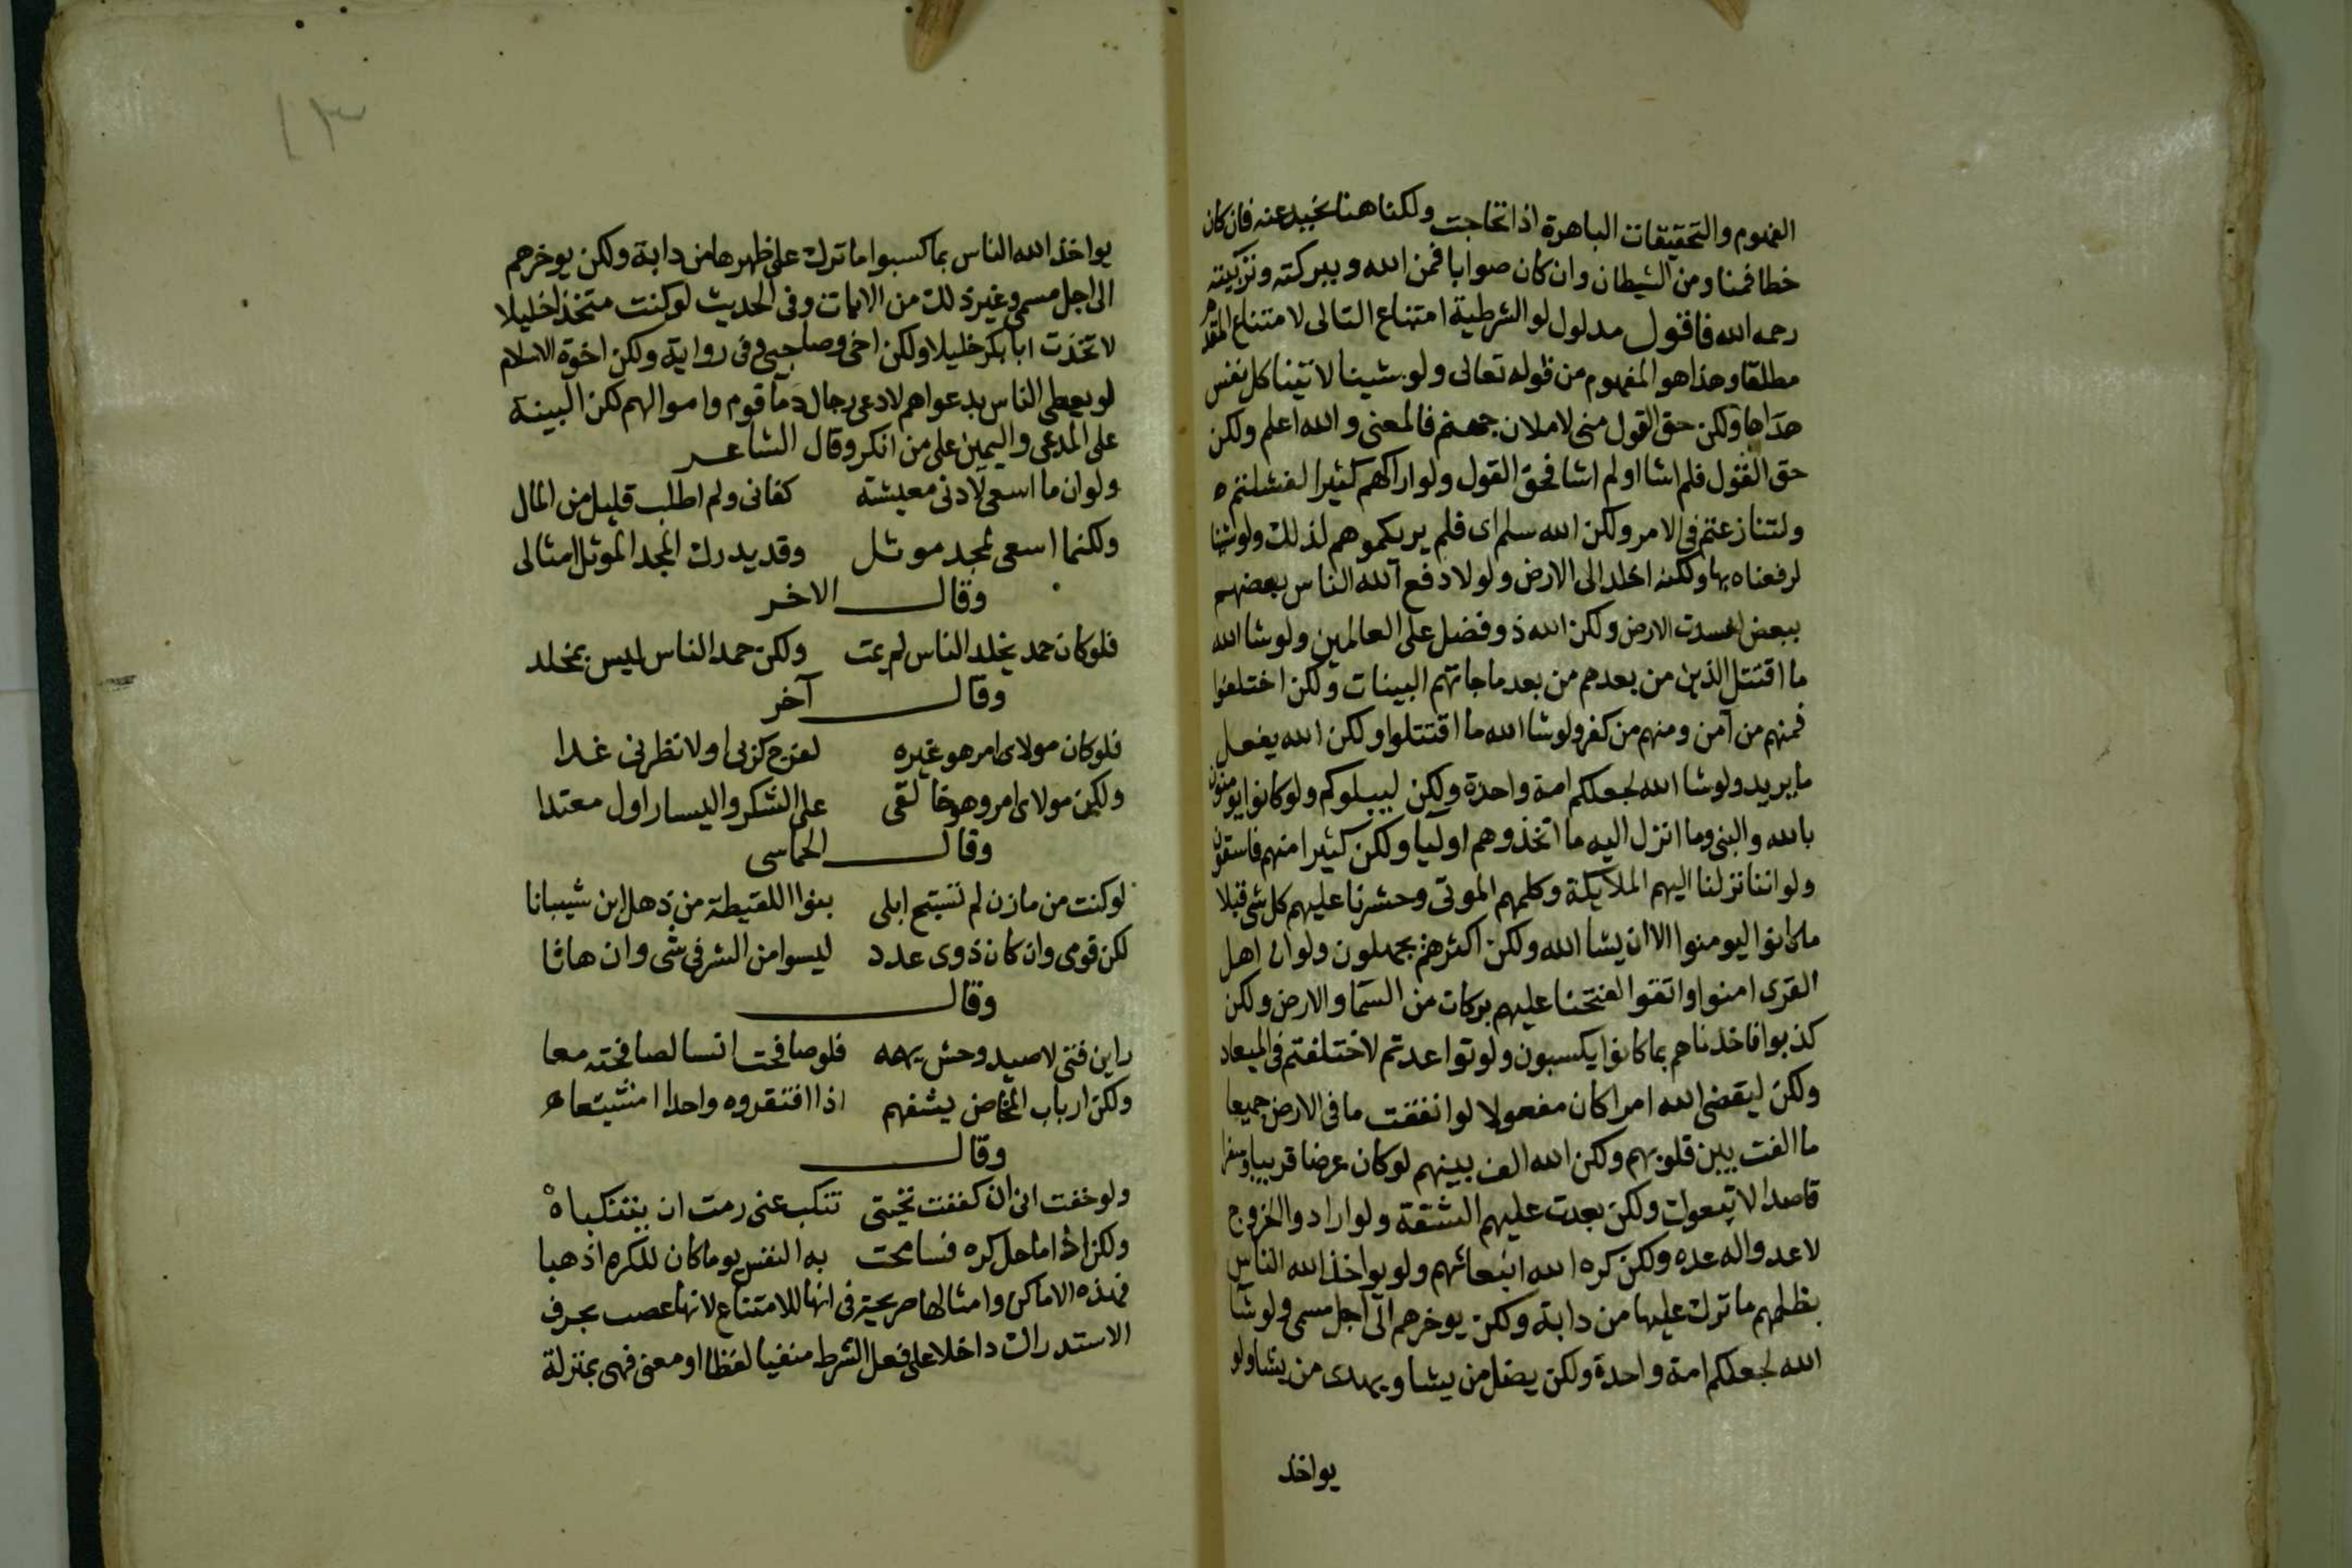 الفهوم والتحقيقات الباهرة اذا تحاجت ولكنا هنا نجيد عنه فان كان
خطا فمنا ومن الشيطان وان كان صوابا فمن الله وببركته وتزكيته
رحمه الله فاقول مدلول لو الشرطية امتناع التالى لامتناع المقدم
مطلقا وهذا هو المفهوم من قوله تعالى ولو شينا لاتينا كل نفس
هداها ولكن حق القول منى لاملان جهنم فالمعنى والله اعلم ولكن
حق القول فلم اشا او لم اشا فحق القول ولو اراكهم كثيرا لفشلتم
ولتنازعتم فى الامر ولكن الله سلم اى فلم يريكموهم لذلك ولو شينا
لرفعناه بها ولكنه اخلد الى الارض ولولا دفع الله الناس بعضهم
ببعض لفسدت الارض ولكن الله ذو فضل على العالمين ولو شا الله
ما اقتتل الذين من بعدهم من بعد ما جاتهم البينات ولكن اختلفوا
فمنهم من آمن ومنهم من كفر ولو شا الله ما اقتتلوا ولكن الله يفعل
ما يريد ولو شا الله لجعلكم امة واحدة ولكن ليبلوكم ولو كانوا يومنون
بالله والنبى وما انزل اليه ما اتخذوهم اوليا ولكن كثيرا منهم فاسقون
ولو اننا نزلنا اليهم الملايكة وكلمهم الموتى وحشرنا عليهم كل شى قبلا
ما كانوا ليومنوا الا ان يشا الله ولكن اكثرهم يجهلون ولو ان اهل
القرى امنوا واتقوا لفتحنا عليهم بركات من السما والارض ولكن
كذبوا فاخذناهم بما كانوا يكسبون ولو تواعدتم لاختلفتم فى الميعاد
ولكن ليقضى الله امرا كان مفعولا لو انفقت ما فى الارض جميعا
ما الفت بين قلوبهم ولكن الله الف بينهم لو كان عرضا قريبا وسفرا
قاصدا لاتبعوك ولكن بعدت عليهم الشقة ولو ارادوا الخروج
لاعدوا له عده ولكن كره الله انبعاثهم ولو يواخذ الله الناس
بظلمهم ما ترك عليها من دابة ولكن يوخرهم الى اجل مسمى ولو شا
الله لجعلكم امة واحدة ولكن يضل من يشا ويهدى من يشا ولو
يواخذ
١٣
يواخذ الله الناس بما كسبوا ما ترك على ظهرها من دابة ولكن يوخرهم
الى اجل مسمى وغير ذلك من الايات وفى الحديث لو كنت متخذا خليلا
لاتخذت ابا بكر خليلا ولكن اخى وصاحبى وفى رواية ولكن اخوة الاسلام
لو يعطى الناس بدعواهم لادعى رجال دما قوم واموالهم لكن البينة
على المدعى واليمين على من انكر وقال الشاعر
ولو ان ما اسعى لادنى معيشة كفانى ولم اطلب قليل من المال
ولكنما اسعى لمجد موثل وقد يدرك المجد الموثل امثالى
وقال الاخر
فلو كان حمد يخلد الناس لم يمت ولكن حمد الناس ليس بمخلد
وقال آخر
فلو كان مولاى امر هو غيره لفرج كربى او لانظرنى غدا
ولكن مولاى امرو هو خانقى على الشكر واليسار اول معتدا
وقال الحماسى
لو كنت من مازن لم تستبح ابلى بنوا اللقيطة من ذهل ابن شيبانا
لكن قومى وان كان ذوى عدد ليسوا من الشر فى شى وان هانا
وقال
راين فتى لا صيد وحش يهمه فلو صافحت انسا لصافحته معا
ولكن ارباب المخاض يشفهم اذا افتقروه واحدا او مشيعا
وقال
ولو خفت انى ان كففت تحيتى تنكب عنى رمت ان يتنكبا
ولكن اذا ما حل كره فسامحت به النفس يوما كان للكره اذهبا
فهذه الاماكن وامثالها صريحة فى انها للامتناع لانها عصب بحرف
الاستدراك داخلا على فعل الشرط منفيا لفظا او معنى فهى بمنزلة